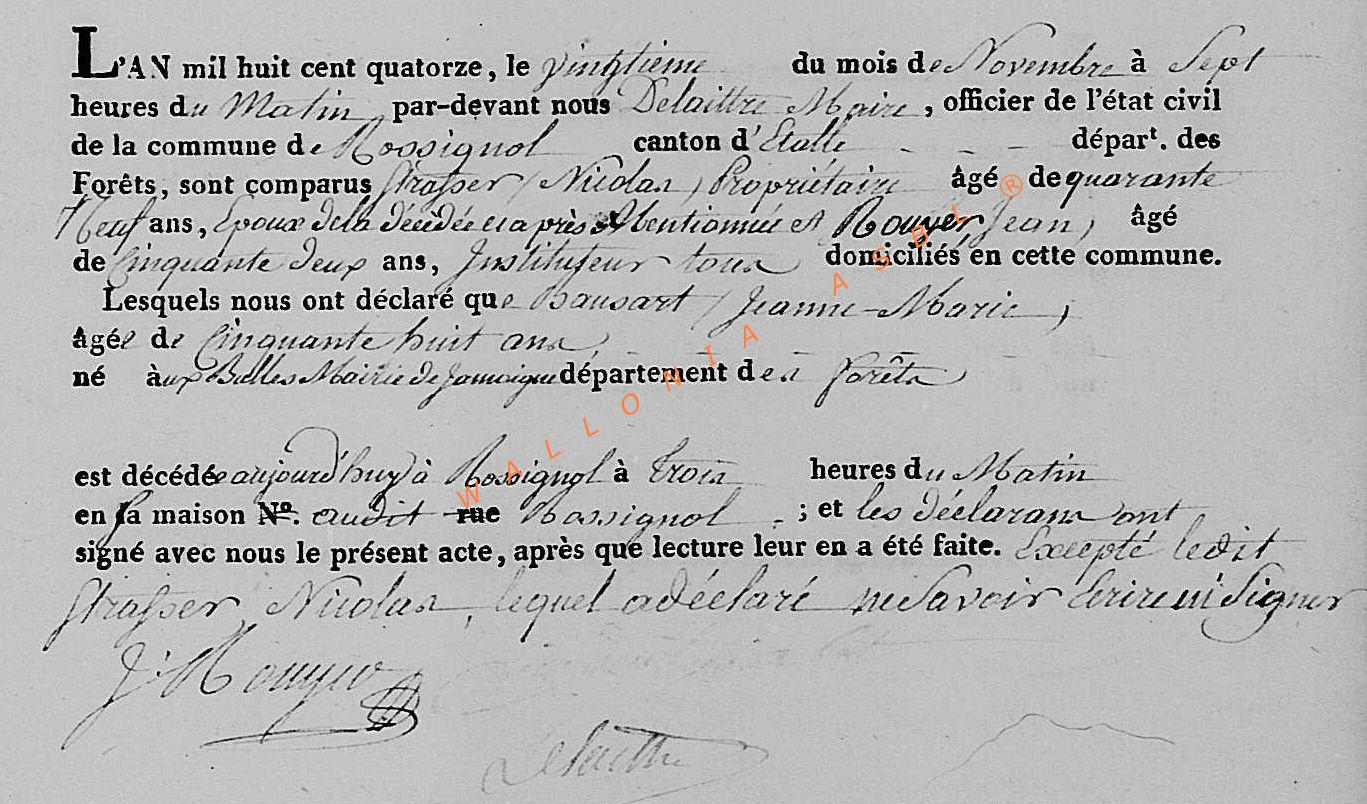 L'AN mil huit cent quatorze, le vingtieme du mois de Novembre à Sept
heures du Matin par-devant nous Delaittre Maire, officier de l'état civil
de la commune de Rossignol canton d'Etalle - - - départ. des
Forêts, sont comparus Strasser / Nicolas / Propriétaire âgé de quarante
Neuf ans, Epoux de la décédée ci après Mentionnée et Rouyer Jean, âgé
de Cinquante deux ans, Instituteur tous domiciliés en cette commune.
Lesquels nous ont déclaré que Bausart / Jeanne-Marie,
âgée de Cinquante huit ans,
né àux Bulles Mairie de Jamoigne département des forêts
est décédée aujourd'huy à Rossignol à trois heures du Matin
en sa maison No. audit rue Rossignol - ; et les déclarans ont
signé avec nous le présent acte, après que lecture leur en a été faite. Excepté ledit
Strasser Nicolas, lequel a déclaré ne Savoir Ecrire ni Signer
J. Rouyer
Delaittre
WALLONIA ASBL ®